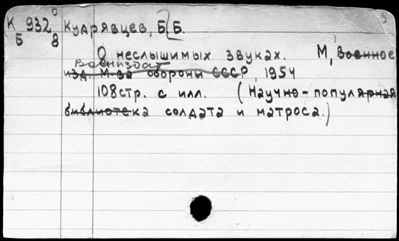 К 932 Кудрявцев, Б.Б.
Б 8
О неслышимых звуках. М, Военное
Воениздат
изд. М-ва обороны СССР, 1954
108стр. с илл. (Научно-популярная
библиотека солдата и матроса.)